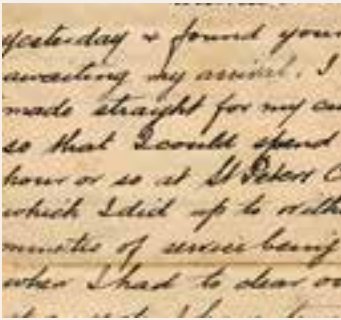 yesterday & found your
awaiting my arrival. I
made straight for my cu
so that I could spend
hour or so at St Peters C
which I did up to with
minutes of service being
when I had to clear ou